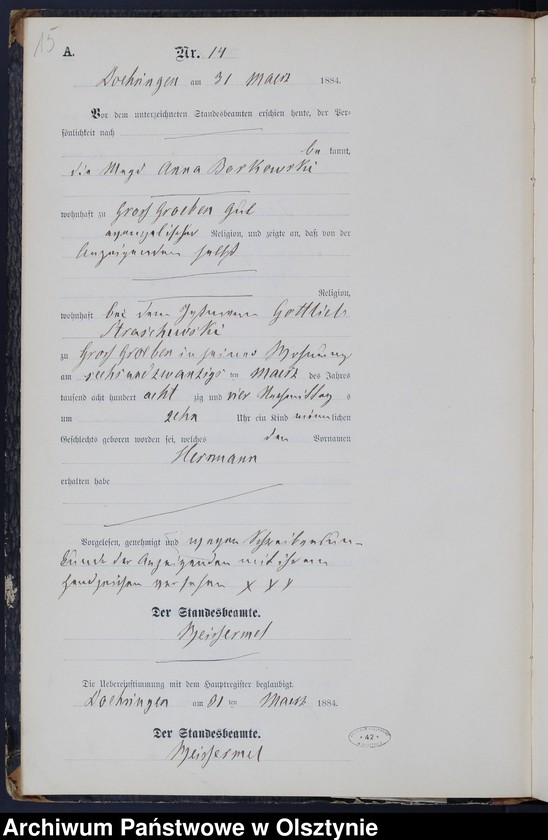 15
A. Nr. 14
Doehringen am 31 Maerz 1884.
Vor dem unterzeichneten Standesbeamten erschien heute, der Per-
sönlichkeit nach
be kannt,
die Magd Anna Borkowski
wohnhaft zu Groß Groeben Gut
evangelischer Religion, und zeigte an, daß von der
Anzeigenden selbst
Religion,
wohnhaft bei dem Gottlieb
Straschewski
zu Groß Groeben in seiner Wohnung
am sechsundzwanzigsten Maerz des Jahres
tausend acht hundert acht zig und vier Nachmittag s
um zehn Uhr ein Kind männlichen
Geschlechts geboren worden sei, welches den Vornamen
Hermann
erhalten habe
Vorgelesen, genehmigt und wegen Schreibensun-
kunde der Anzeigenden mit ihrem
Handzeichen versehen X X X
Der Standesbeamte.
Meissermel
Die Uebereinstimmung mit dem Hauptregister beglaubigt.
Doehringen am 31 ten Maerz 1884.
Der Standesbeamte.
Meissermel
42
Archiwum Państwowe w Olsztynie